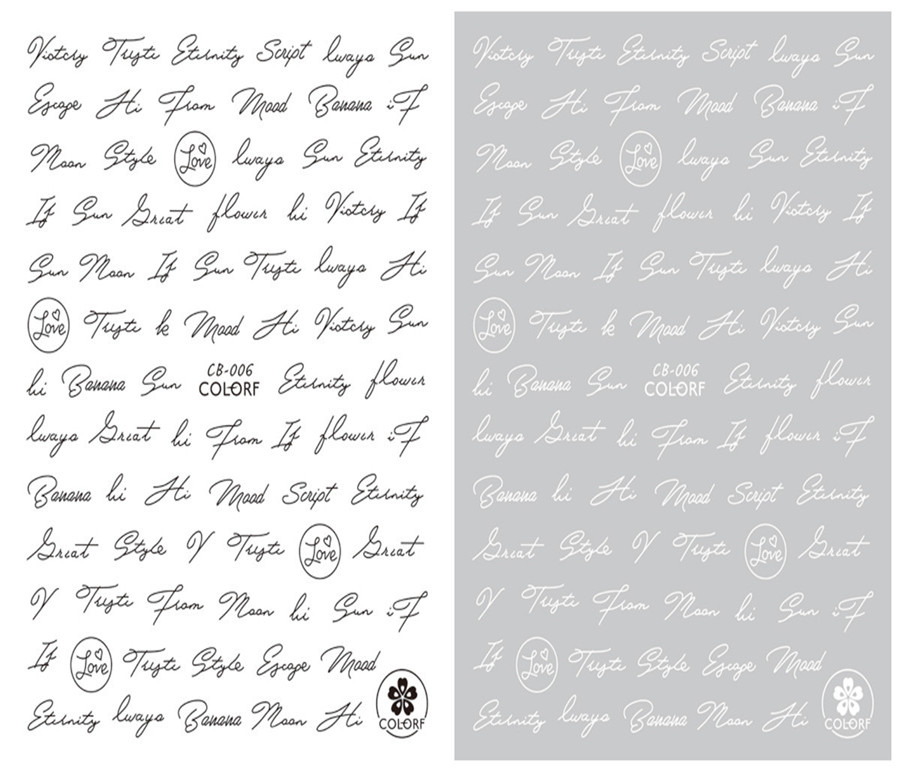 Victcry Tryste Eternity Script lways Sun
Escape Hi From Mood Banana iF
Moon Style Love lways Sun Eternity
If Sun Great flower hi Victcry If
Sun Moon If Sun Tryste lways Hi
Love Tryste k Mood Hi Victcry Sun
hi Banana Sun CB-006 COLORF Eternity flower
lways Great hi From If flower iF
Banana hi Hi Mood Script Eternity
Great Style Y Tryste Love Great
Y Tryste From Moon hi Sun iF
If Love Tryste Style Escape Mood
Eternity lways Banana Moon Hi COLORF
Victcry Tryste Eternity Script lways Sun
Escape Hi From Mood Banana iF
Moon Style Love lways Sun Eternity
If Sun Great flower hi Victcry If
Sun Moon If Sun Tryste lways Hi
Love Tryste k Mood Hi Victcry Sun
hi Banana Sun CB-006 COLORF Eternity flower
lways Great hi From If flower iF
Banana hi Hi Mood Script Eternity
Great Style Y Tryste Love Great
Y Tryste From Moon hi Sun iF
If Love Tryste Style Escape Mood
Eternity lways Banana Moon Hi COLORF